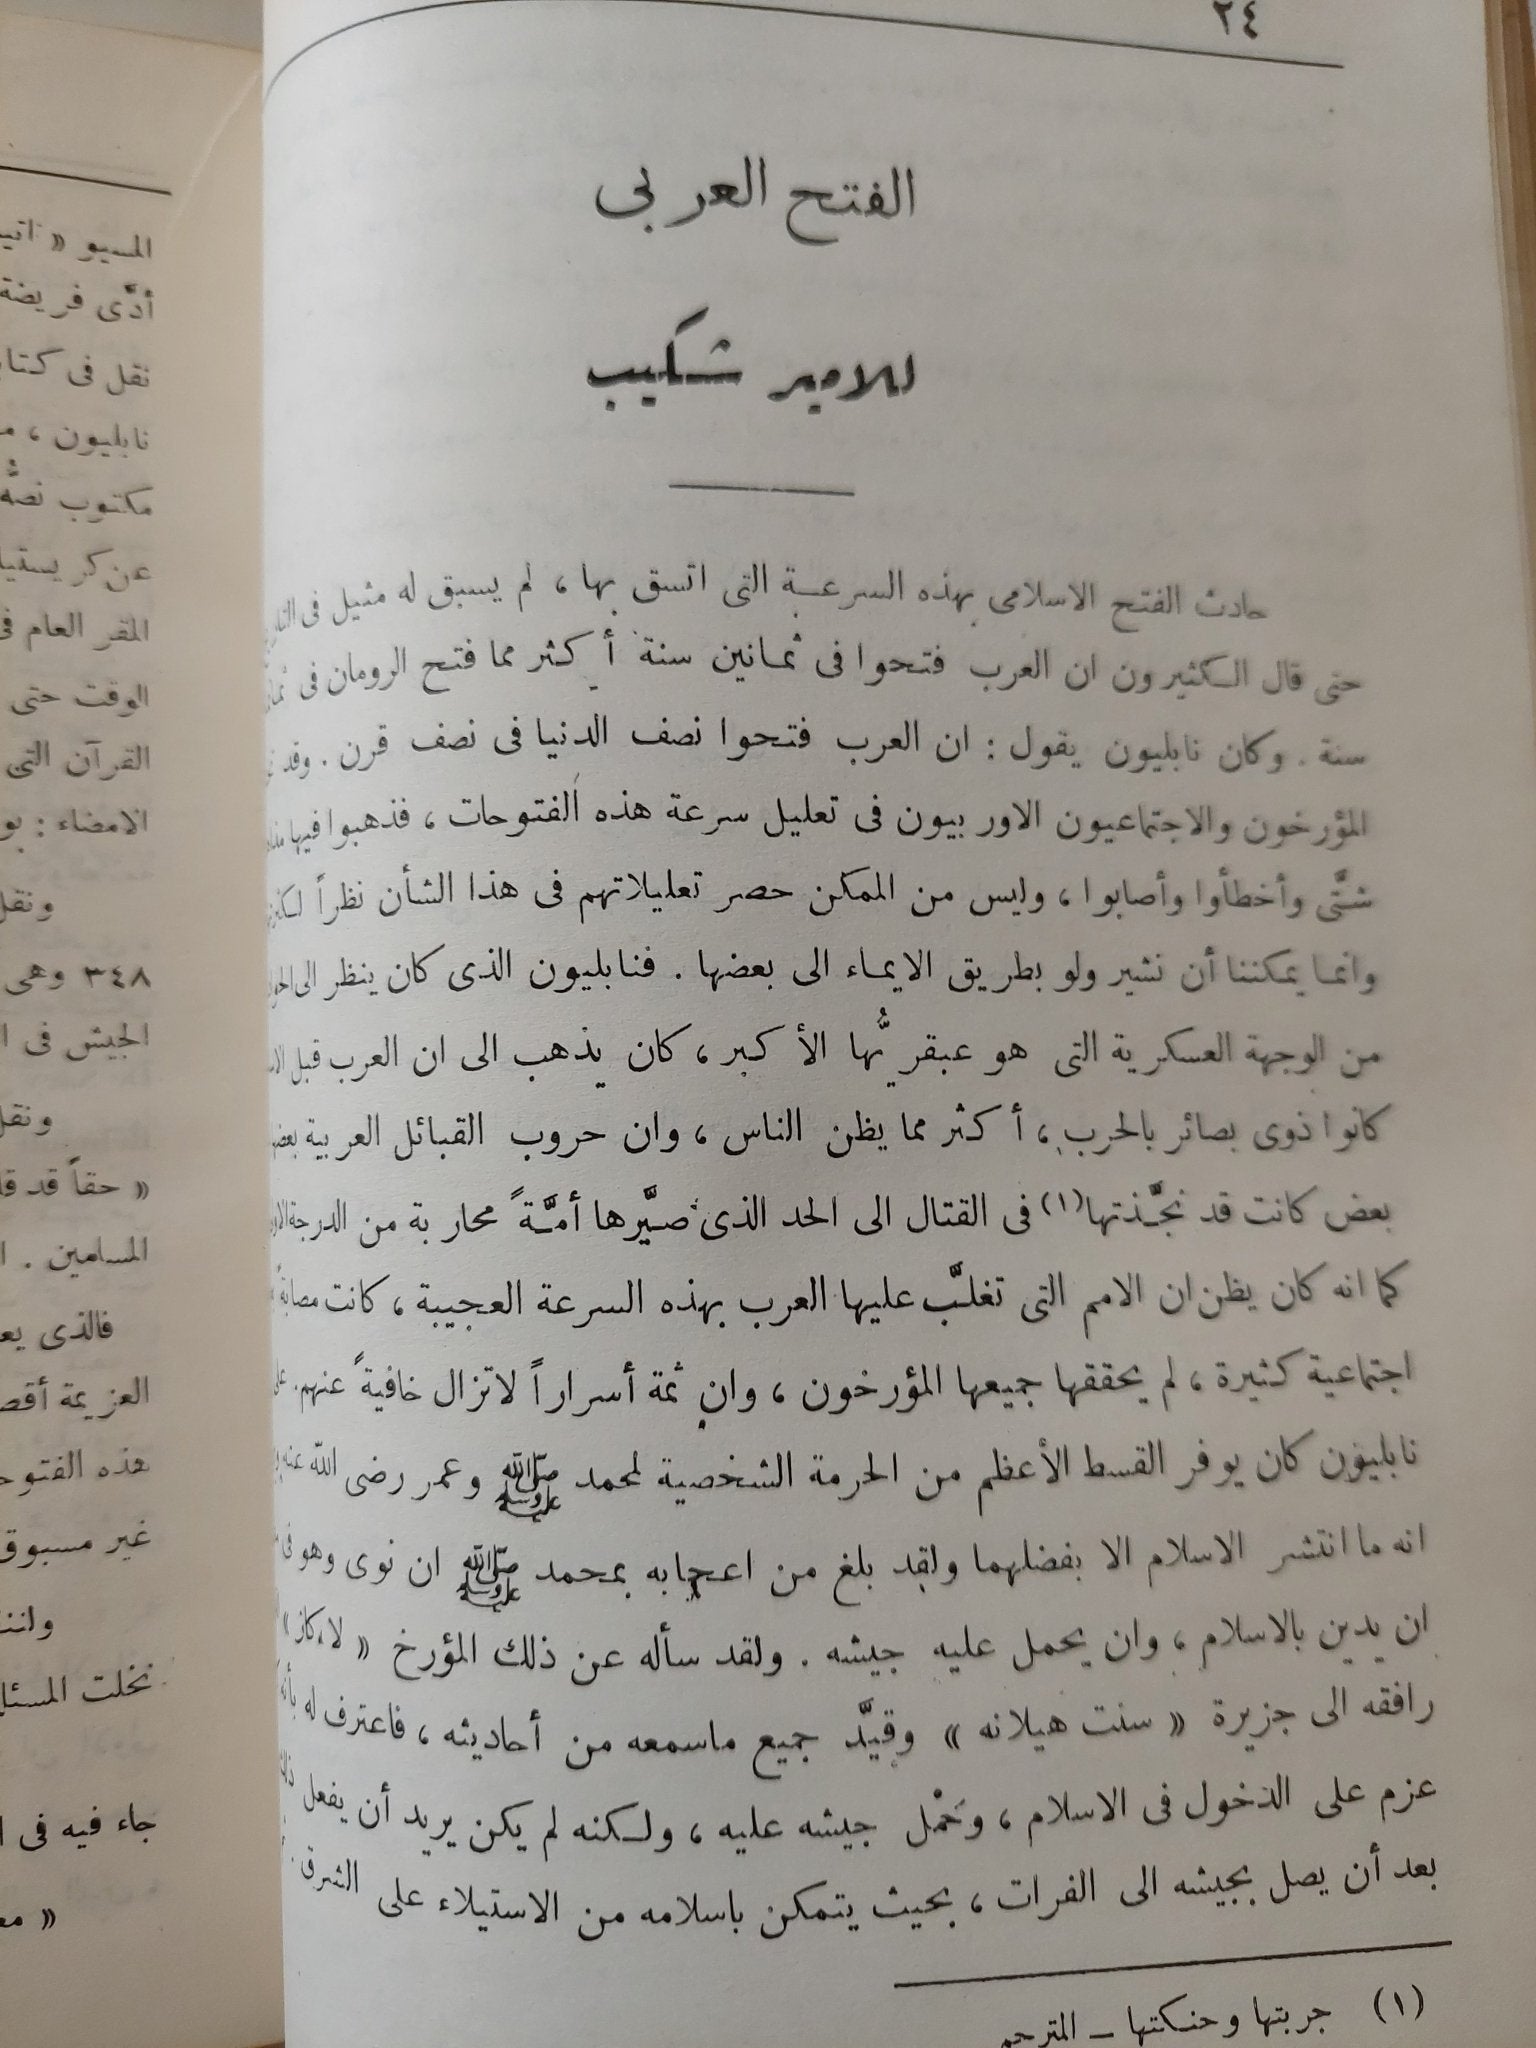 ٢٤
الفتح العربى
للامير شكيب
حادث الفتح الاسلامى بهذه السرعة التى اتسق بها ، لم يسبق له مثيل فى
حتى قال الكثيرون ان العرب فتحوا فى ثمانين سنة أكثر مما فتح الرومان فى
سنة . وكان نابليون يقول : ان العرب فتحوا نصف الدنيا فى نصف قرن . وقد
المؤرخون والاجتماعيون الاوربيون فى تعليل سرعة هذه الفتوحات ، فذهبوا فيها
شتَّى وأخطأوا وأصابوا ، وليس من الممكن حصر تعليلاتهم فى هذا الشأن نظراً
وانما يمكننا أن نشير ولو بطريق الايماء الى بعضها . فنابليون الذى كان ينظر الى
من الوجهة العسكرية التى هو عبقريُّها الأكبر ، كان يذهب الى ان العرب قبل
كانوا ذوى بصائر بالحرب ، أكثر مما يظن الناس ، وان حروب القبائل العربية
بعض كانت قد نجَّذتها (١) فى القتال الى الحد الذى صيَّرها أمَّةً محاربة من الدرجة
كما انه كان يظن ان الامم التى تغلَّب عليها العرب بهذه السرعة العجيبة ، كانت مصابة
اجتماعية كثيرة ، لم يحققها جميعها المؤرخون ، وان ثمة أسراراً لاتزال خافيةً عنهم .
نابليون كان يوفر القسط الأعظم من الحرمة الشخصية لمحمد ﷺ وعمر رضى الله عنه
انه ما انتشر الاسلام الا بفضلهما ولقد بلغ من اعجابه بمحمد ﷺ ان نوى وهو
ان يدين بالاسلام ، وان يحمل عليه جيشه . ولقد سأله عن ذلك المؤرخ «
رافقه الى جزيرة « سنت هيلانه » وقيَّد جميع ماسمعه من أحاديثه ، فاعترف له
عزم على الدخول فى الاسلام ، وحَمْل جيشه عليه ، ولكنه لم يكن يريد أن يفعل
بعد أن يصل بجيشه الى الفرات ، بحيث يتمكن باسلامه من الاستيلاء على الشرق .
(١) جربتها وحنكتها — المترجم
المسيو «
أدَّى فريضة
نقل فى
نابليون ،
مكتوب نصُّه
عن
المقر العام
الوقت حتى
القرآن التى
الامضاء :
ونقل
٣٤٨ وهى
الجيش فى
ونقل
« حقاً قد
المسلمين .
فالذى
العزيمة
هذه
غير مسبوق
نخلت
جاء فيه فى
«